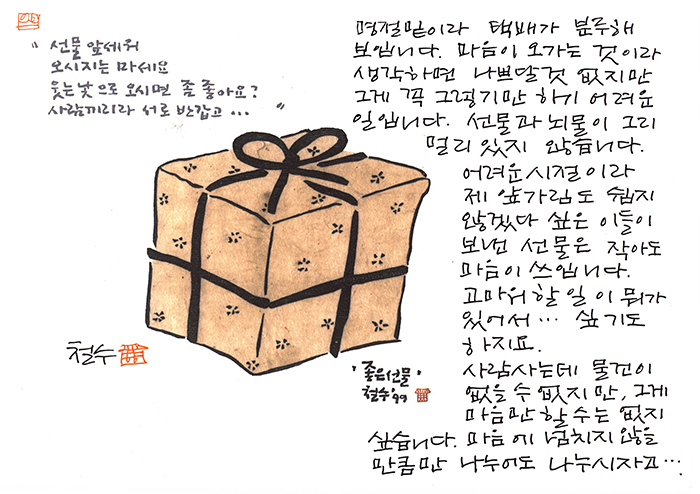 " 선물 앞세워
오시지는 마세요
웃는 낯으로 오시면 좀 좋아요?
사람끼리라 서로 반갑고 ... "
명절밑이라 택배가 분주해
보입니다. 마음이 오가는 것이라
생각하면 나쁘달것 없지만
그게 꼭 그렇기만 하기 어려운
일입니다. 선물과 뇌물이 그리
멀리 있지 않습니다.
어려운 시절이라
제 앞가림도 쉽지
않겠다 싶은 이들이
보낸 선물은 작아도
마음이 쓰입니다.
고마워할 일이 뭐가
있어서… 싶기도
하지요.
사람사는데 물건이
없을 수 없지만, 그게
마음만 할 수는 없지
싶습니다. 마음에 넘치지 않을
만큼만 나누어도 나누시자고…
철수
'좋은선물'
철수 '99